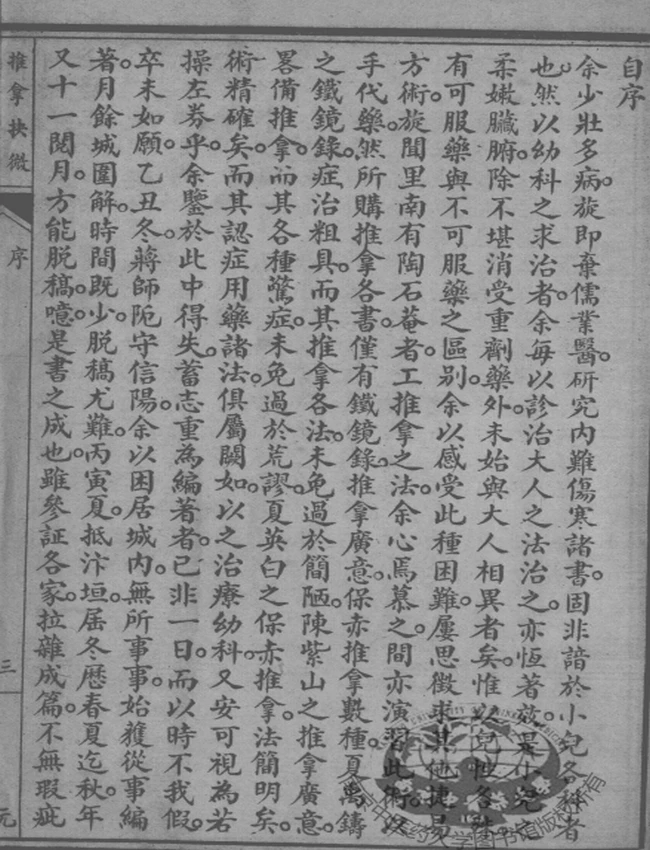 自序
余少壯多病。旋即棄儒業醫。研究內難傷寒諸書。固非諳於小兒各科者
也。然以幼科之求治者。余每以診治大人之法治之。亦恆著效。是小兒之
柔嫩臟腑。除不堪消受重劑藥外。未始與大人相異者矣。惟以兒性各殊。
有可服藥與不可服藥之區别。余以感受此種困難。屢思徵求其他捷易
方術。旋聞里南有陶石菴者。工推拿之法。余心焉慕之。間亦演習此術。以
手代藥。然所購推拿各書。僅有鐵鏡錄。推拿廣意。保赤推拿數種。夏禹鑄
之鐵鏡錄。症治粗具。而其推拿各法。未免過於簡陋。陳紫山之推拿廣意。
畧備推拿。而其各種驚症。未免過於荒謬。夏英白之保赤推拿。法簡明矣。
術精確矣。而其認症用藥諸法。俱屬闕如。以之治療幼科。又安可視為若
操左券乎。余鑒於此中得失。蓄志重為編著者。已非一日。而以時不我假。
卒未如願。乙丑冬。蔣師阨守信陽。余以困居城内。無所事事。始獲從事編
著。月餘城圍解。時間既少。脱稿尤難。丙寅夏。抵汴垣。届冬歷春夏迄秋。年
又十一閲月。方能脱稿。噫。是書之成也。雖參証各家。拉雜成篇。不無瑕疵
推拿抉微
序
三
元